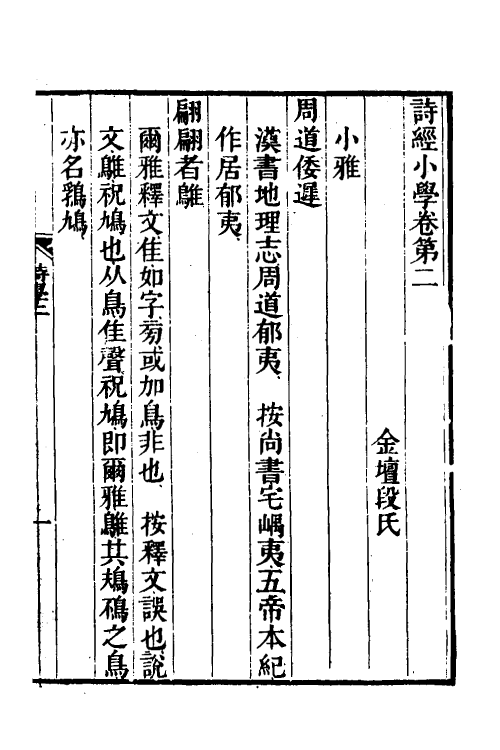 詩經小學卷第二
金壇段氏
小雅
周道倭遲
漢書地理志周道郁夷 按尚書宅嵎夷五帝本紀
作居郁夷
翩翩者鵻
爾雅釋文隹如字旁或加鳥非也 按釋文誤也說
文鵻祝鳩也从鳥隹聲祝鳩即爾雅鵻其鳺鴀之鳥
亦名鶉鳩
詩學二
一